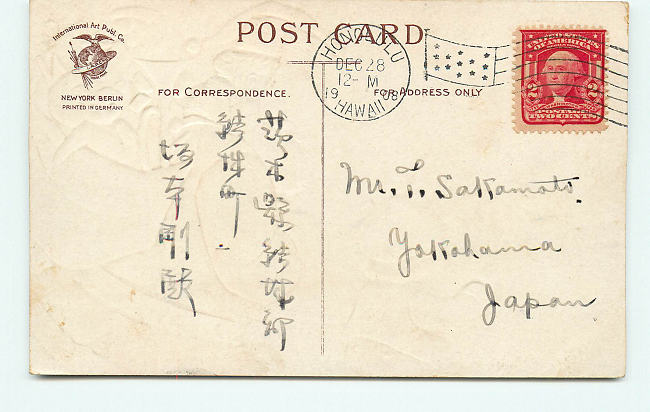 POST CARD
International Art Publ. Co.
NEW YORK BERLIN
PRINTED IN GERMANY
FOR CORRESPONDENCE.
FOR ADDRESS ONLY
HONOLULU
DEC 28
12- M
19 08
HAWAII
UNITED STATES
OF AMERICA
2 2
POSTAGE
TWO CENTS
茨木縣結城郡
結城町
坂本剛殿
Mr. T. Sakamoto.
Yokohama
Japan